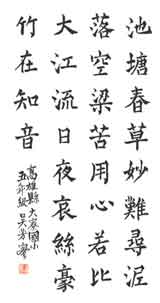 池塘春草妙難尋泥
落空梁苦用心若比
大江流日夜哀絲豪
竹在知音
高雄縣大寮國小
五年級吳芳